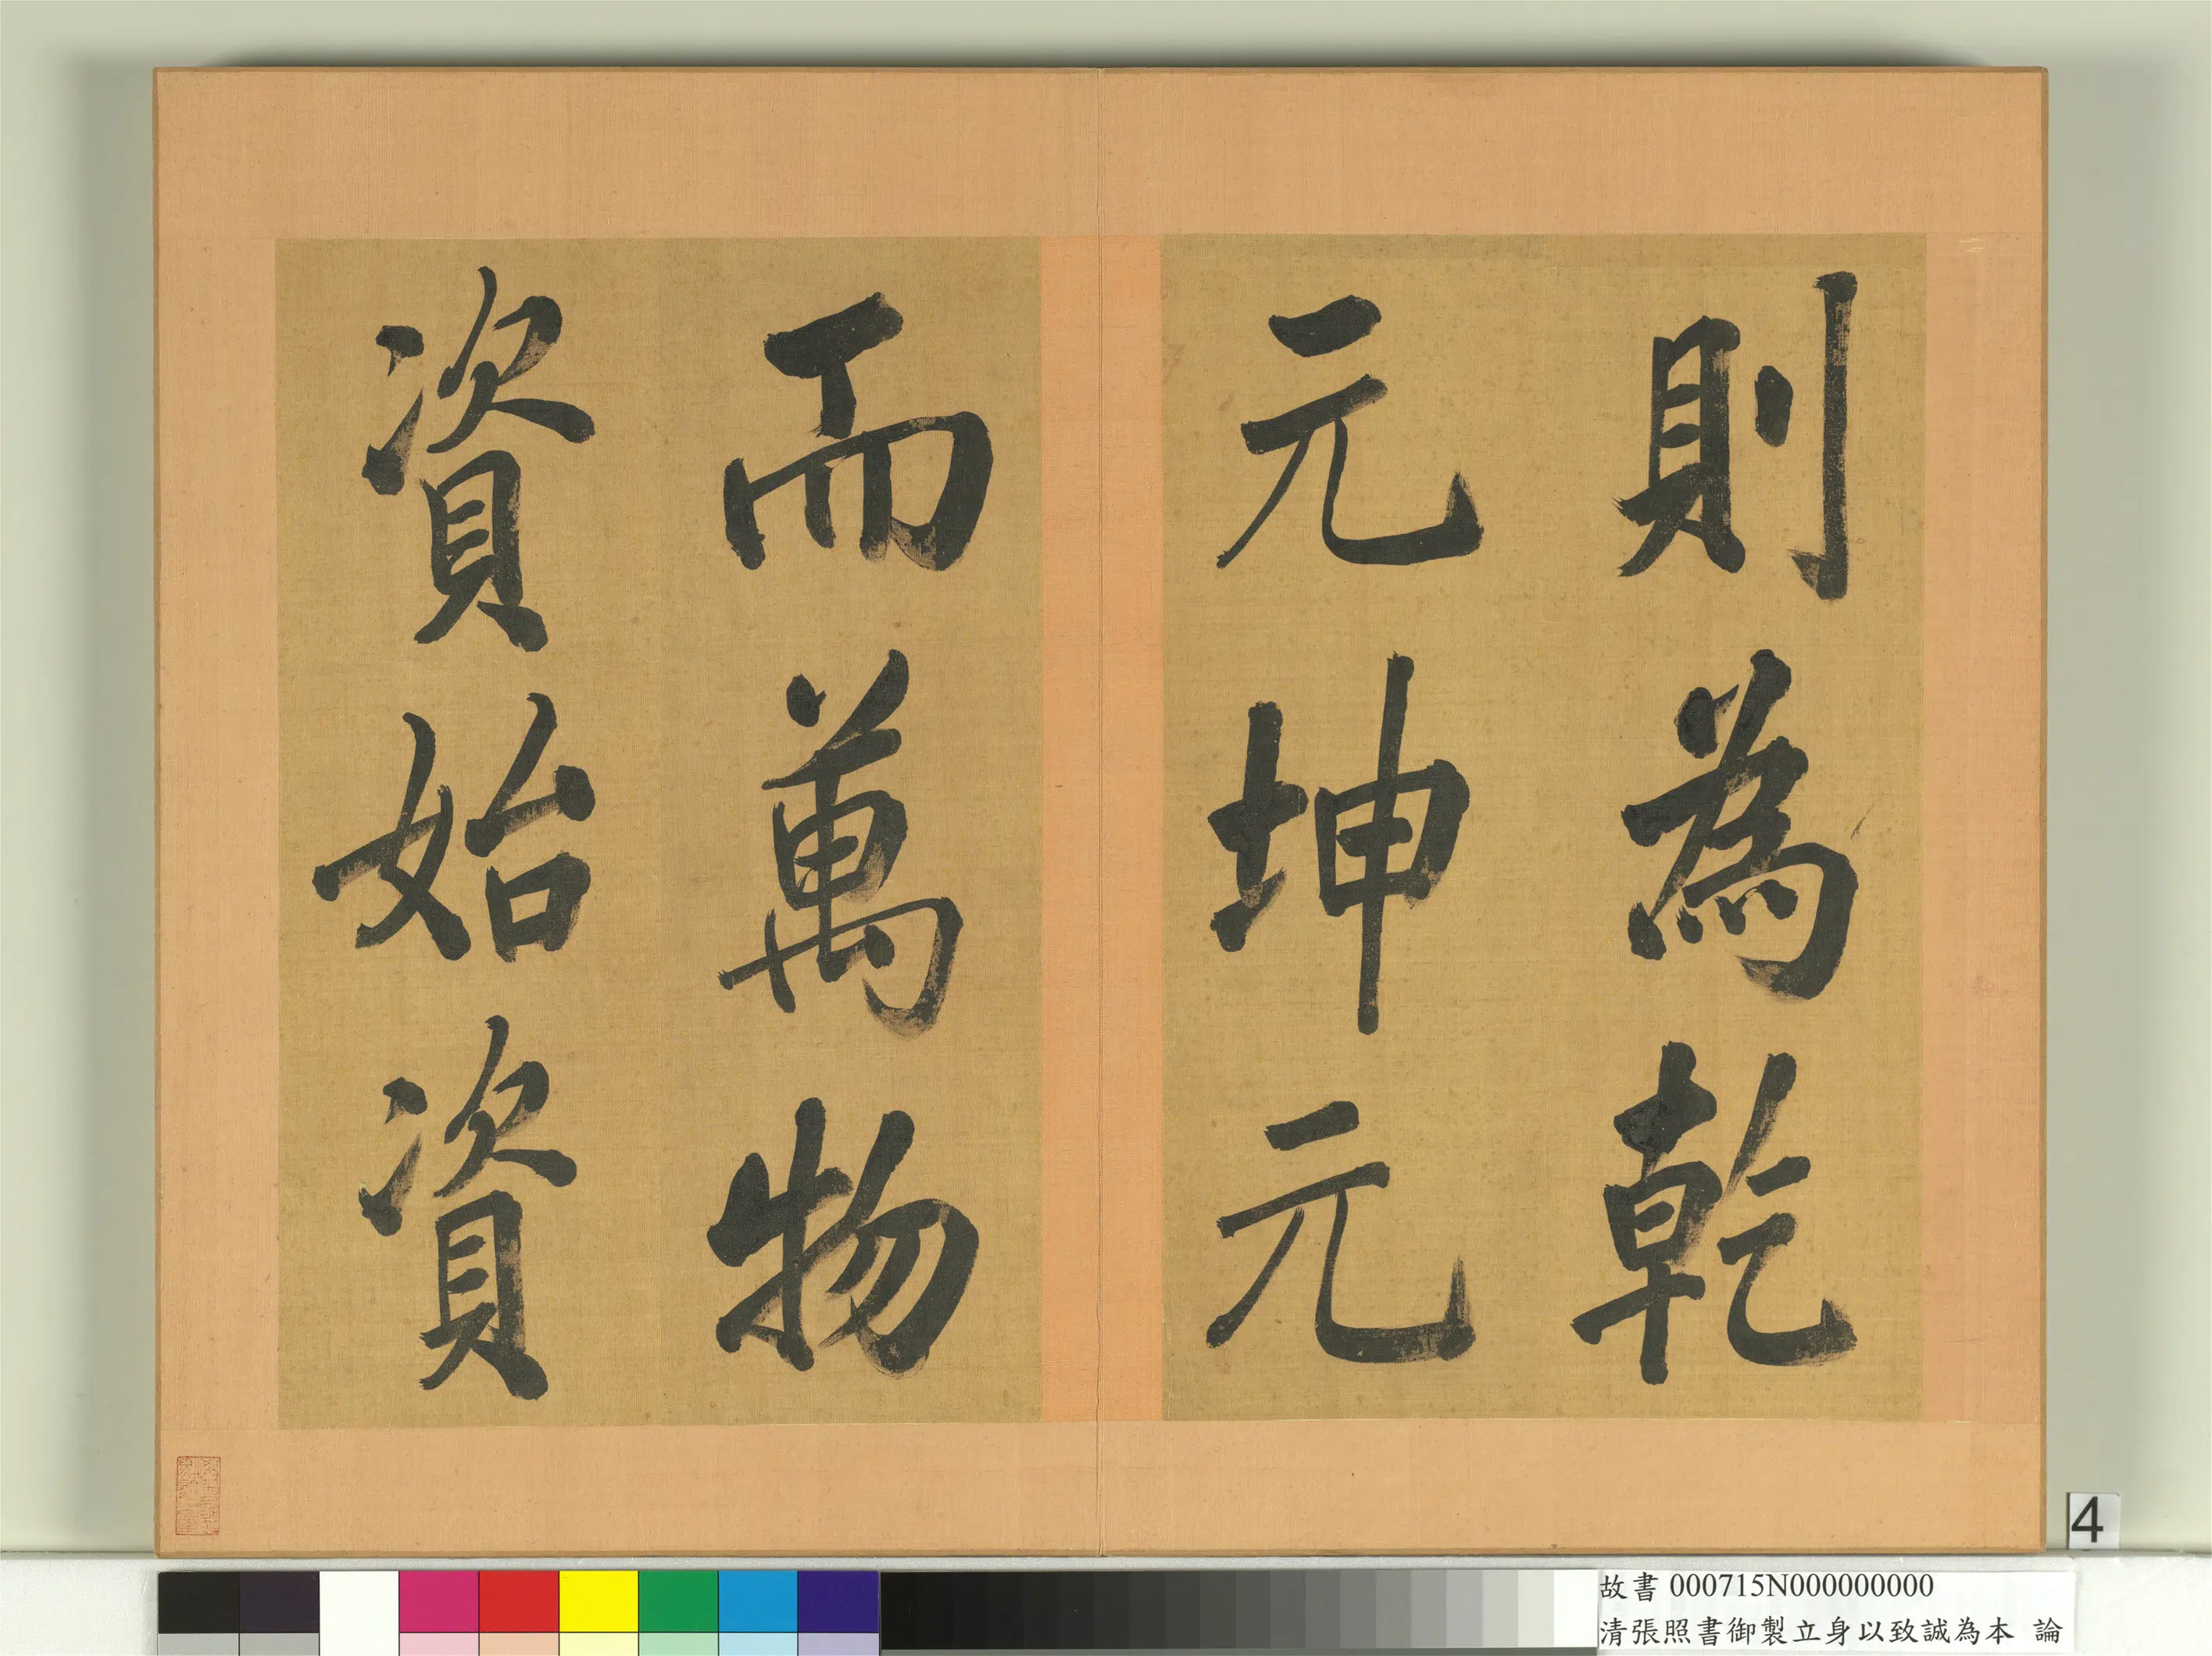 則為乾
元坤元
而萬物
資始資
4
故書 000715N000000000
清張照書御製立身以致誠為本 論